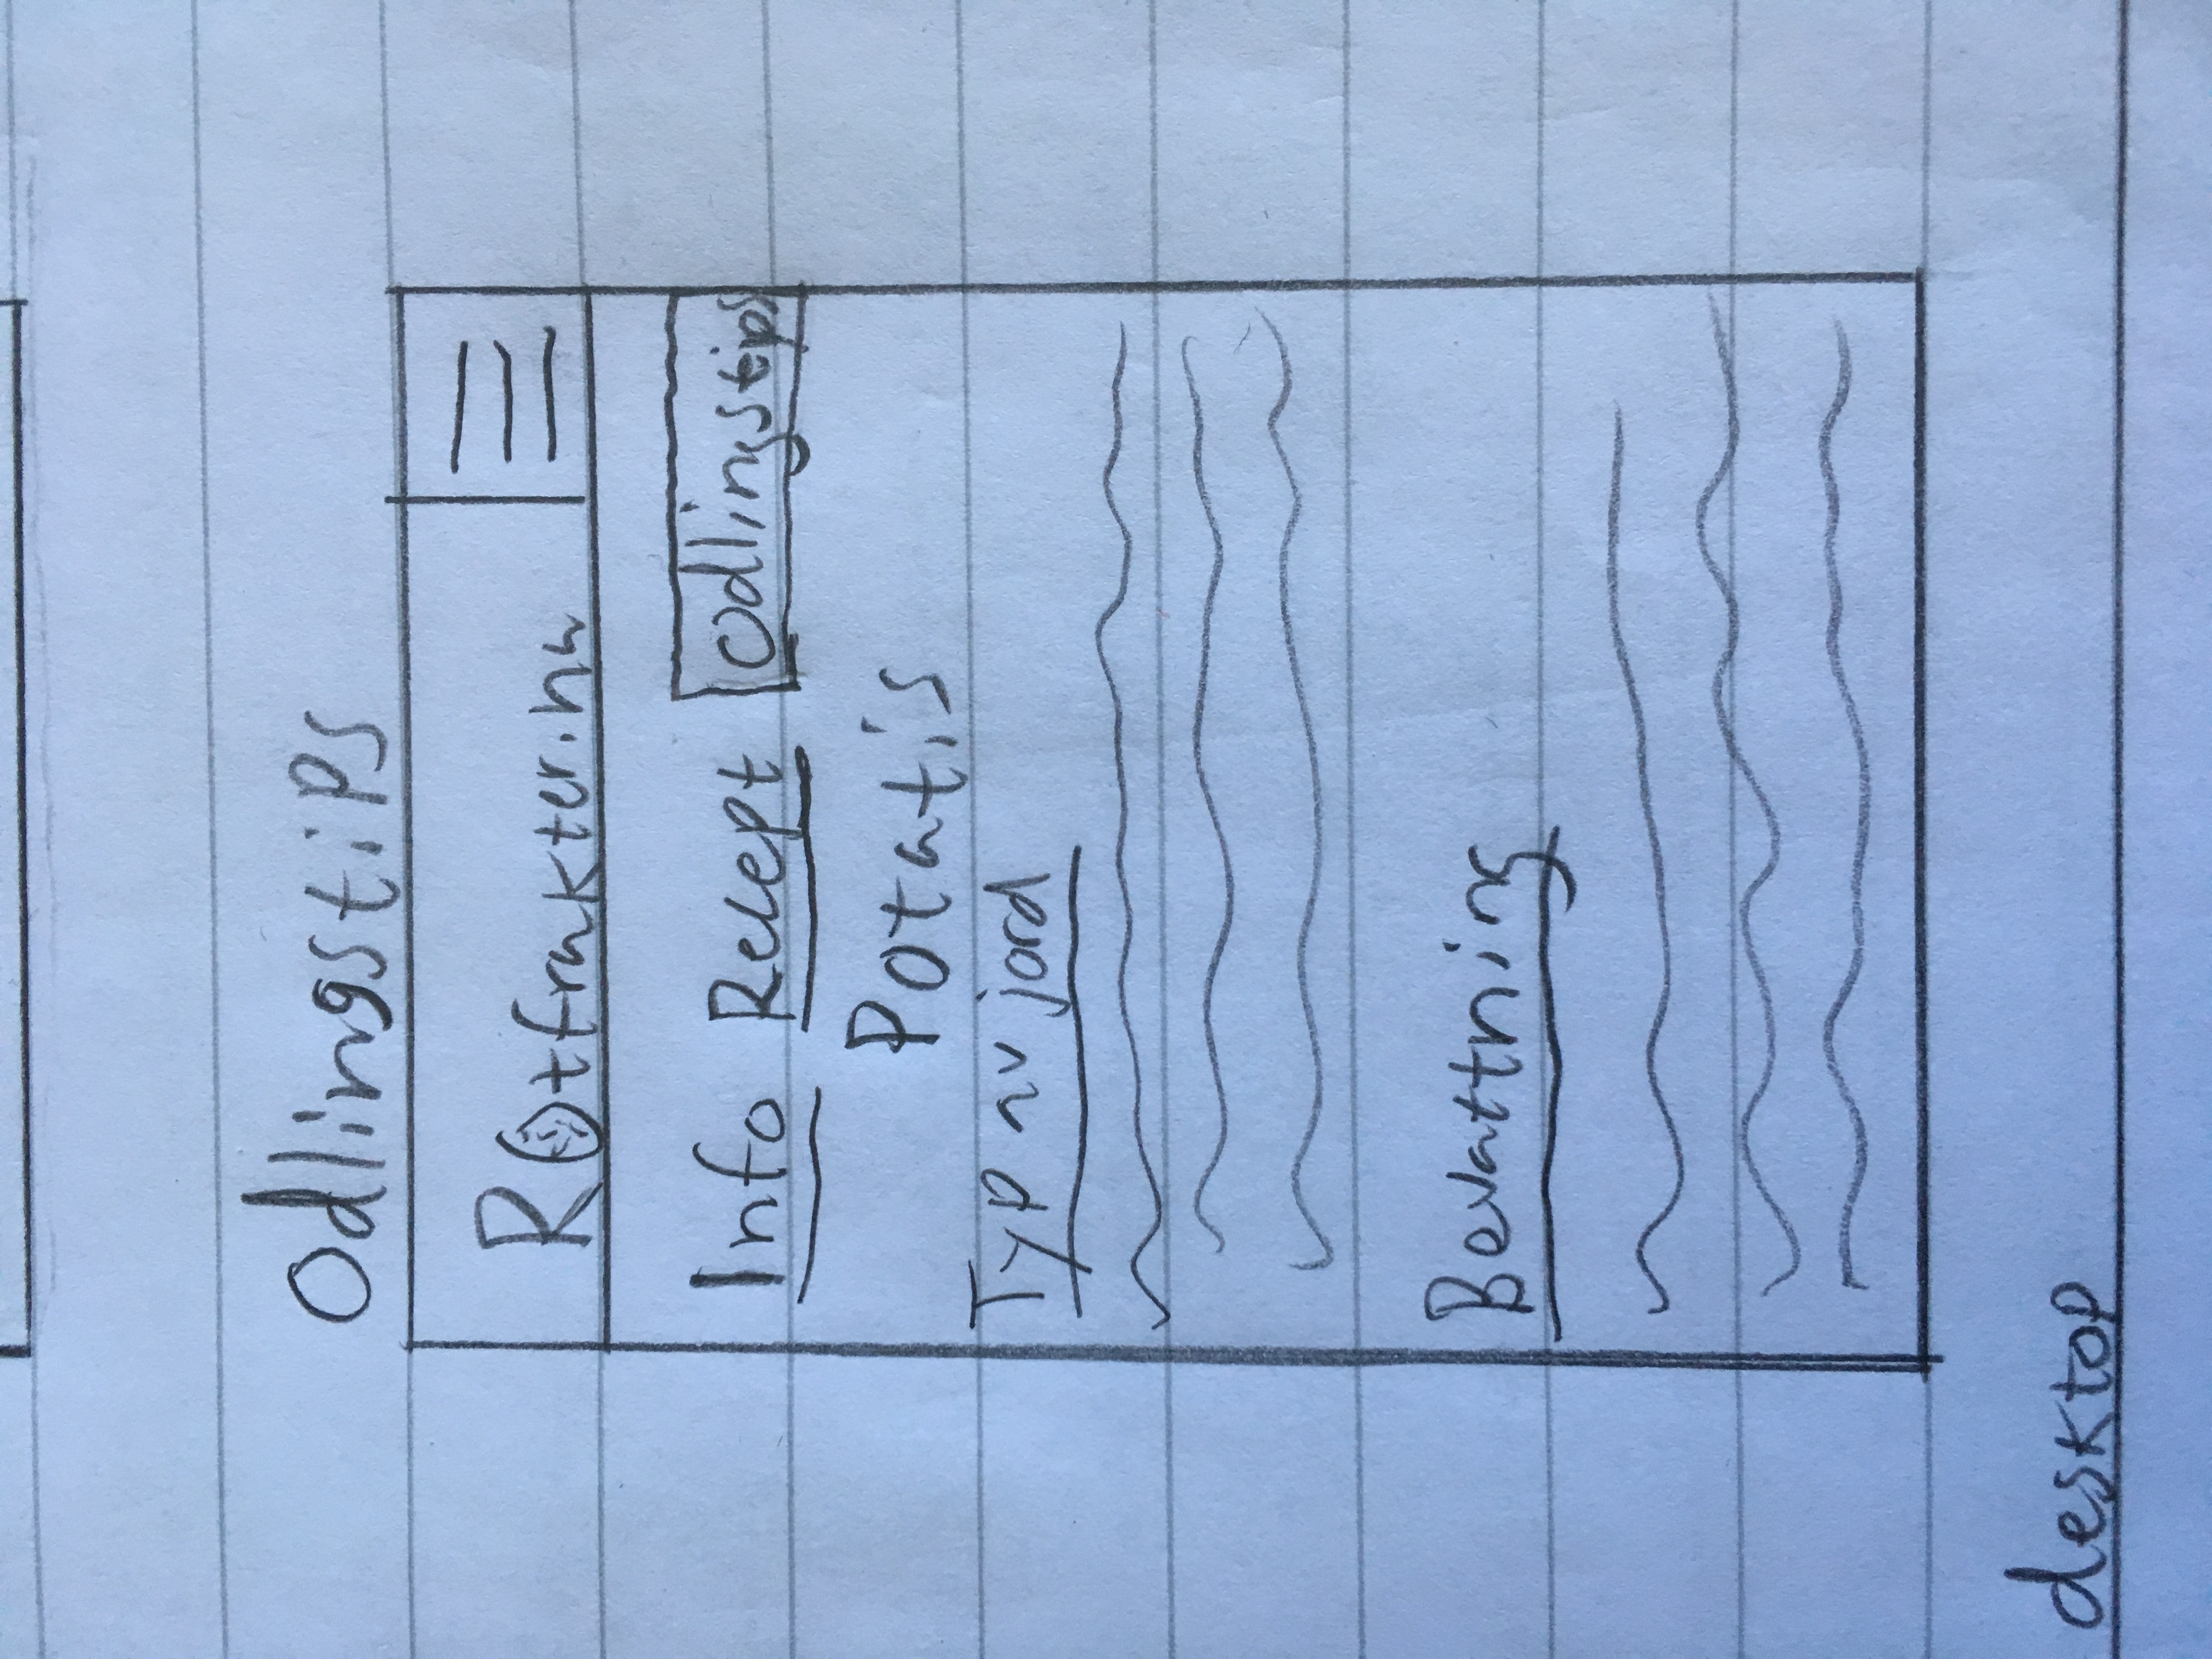 Odlingstips
Rotfrakter.na
Info Recept Odlingstips
Potatis
Typ av jord
Bevattning
desktop